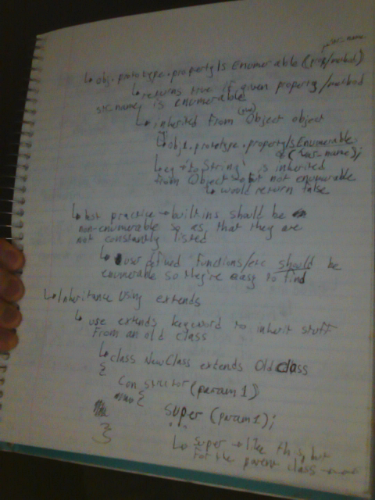 ↳ obj.prototype.propertyIsEnumerable(prop/method)
↳ returns true if given property/method
str name is enumerable
↳ inherited from Object object
↳ obj.prototype.propertyIsEnumerable
↳ eg 'toString' is inherited
from Object but not enumerable
↳ would return false
↳ best practise → builtins should be
non-enumerable so as, that they are
not constantly listed
↳ user defined functions/etc should be
enumerable so they're easy to find
↳ Inheritance using extends
↳ use extends keyword to inherit stuff
from an old class
↳ class NewClass extends OldClass
{
constructor(param1)
{
super(param1);
}
↳ super → like this, but
for the parent class